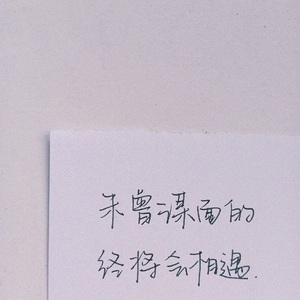 未曾谋面的
终将会相遇.